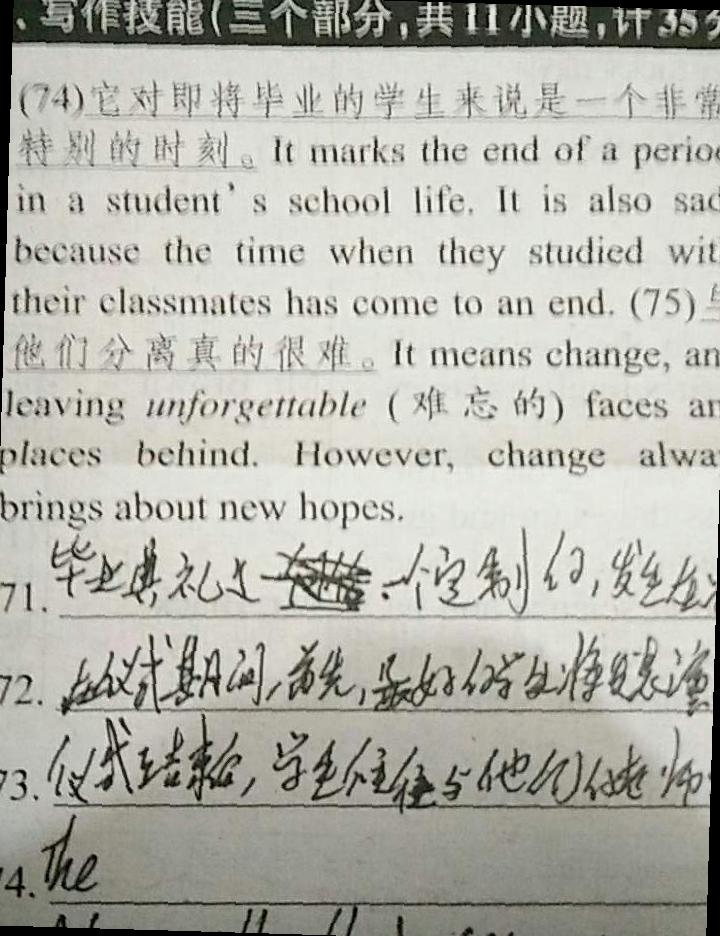 、写作技能(三个部分,共11小题,计35分
(74)它对即将毕业的学生来说是一个非常
特别的时刻。It marks the end of a perio
in a student's school life. It is also sad
because the time when they studied wit
their classmates has come to an end. (75)与
他们分离真的很难。It means change, an
leaving unforgettable (难忘的) faces an
places behind. However, change alwa
brings about new hopes.
71. 毕业典礼是一个定制的,发生在
72. 在仪式期间,首先,最好的学生将发表演
73. 仪式结束后,学生往往与他们的老师
74. The